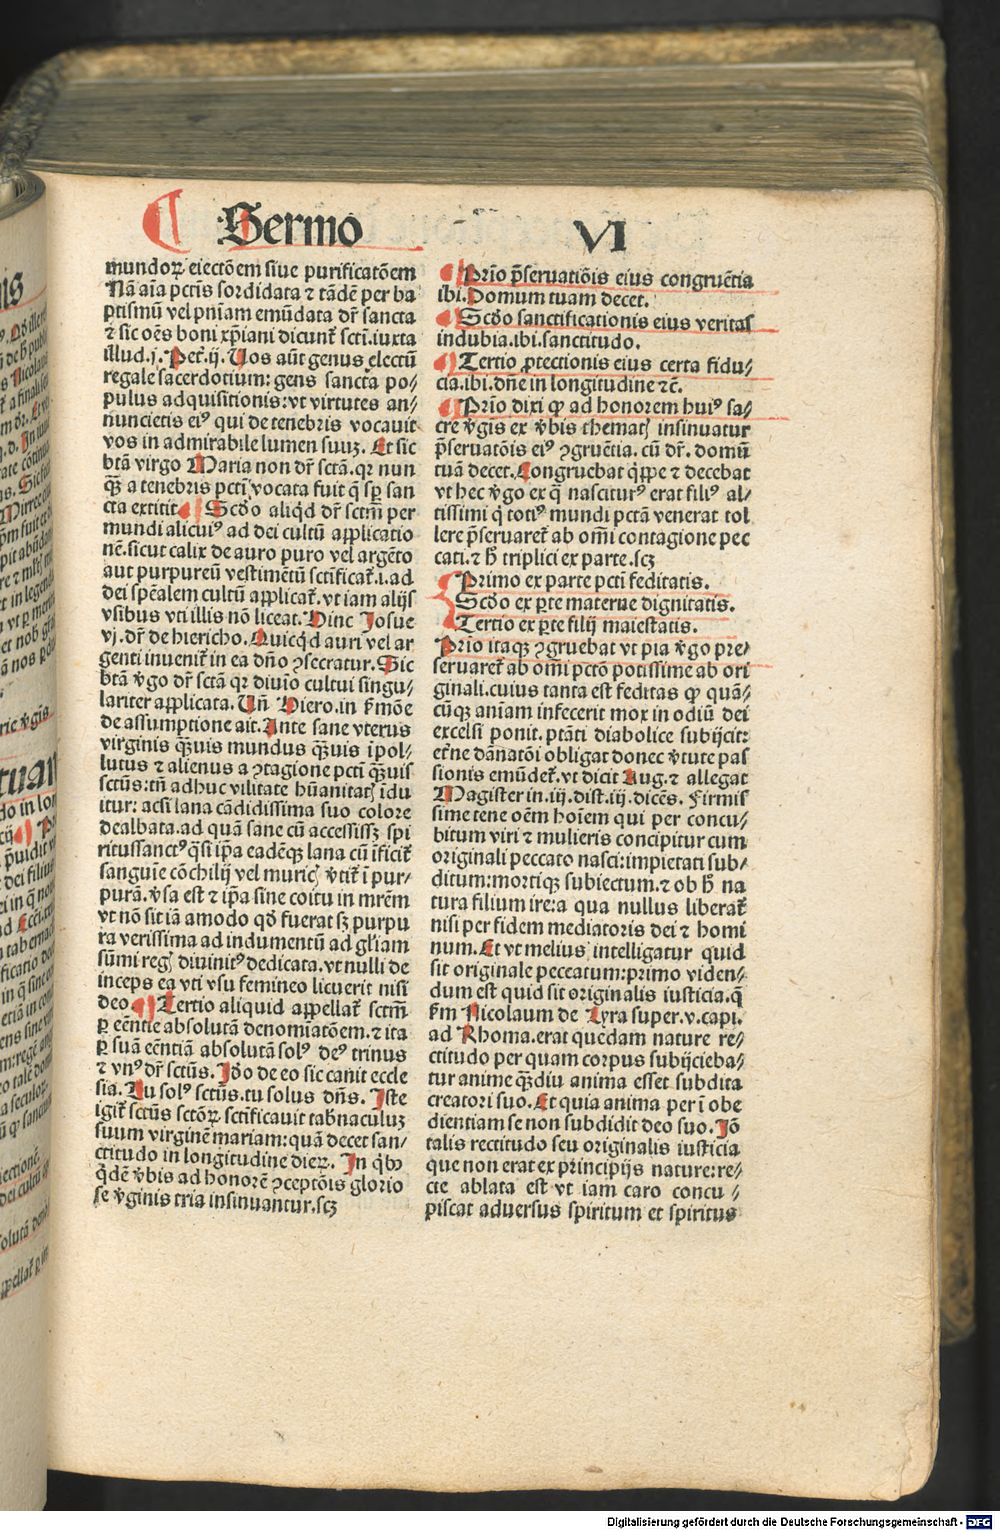 Sermo VI
mundoꝝ eiectōem siue purificatōem
Nā aīa pctīs sordidata ⁊ tādē per ba
ptismū vel pniam emūdata dr̄ sancta
⁊ sic oēs boni xp̄iani dicunt̄ sctī.iuxta
illud.j.Pet̄.ij.Uos aūt genus electū
regale sacerdotium: gens sancta po⸗
pulus adquisitionis:vt virtutes an⸗
nuncietis eiꝰ qui de tenebris vocauit
vos in admirabile lumen suuꝫ. Et sic
btā virgo Maria non dr̄ sctā.qꝛ nun
qꝫ a tenebris pctī vocata fuit q̄ sp̄ san
cta extitit ¶ Scd̄o aliqd̄ dr̄ sctm̄ per
mundi alicuiꝰ ad dei cultū applicatio
nē.sicut calix de auro puro vel argēto
aut purpureū vestimētū sctīficat̄.i.ad
dei spēalem cultū applicat̄.vt iam alijs
vsibus vti illis nō liceat.Hinc Josue
vj.dr̄ de hiericho.Quicqd̄ auri vel ar
genti inuenit̄ in ea dn̄o ꝯsecratur.Sic
btā v̄go dr̄ sctā qꝛ diuīo cultui singu⸗
lariter applicata.Un̄ Hiero.in ẜmōe
de assumptione ait.Ante sane vterus
virginis qꝫuis mundus qꝫuis īpol⸗
lutus ⁊ alienus a ꝯtagione pctī qꝫuis
sctūs:tn̄ adhuc vilitate hūanitatꝭ idu
itur: acsi lana cādidissima suo colore
dealbata.ad quā sane cū accessissꝫ spi
ritussanctꝰ q̄si ip̄a eadēqꝫ lana cū īficit̄
sanguīe cōchilij vel muricꝭ v̄tit̄ ī pur⸗
purā.v̄sa est ⁊ ip̄a sine coitu in mr̄em
vt nō sit iā amodo qd̄ fuerat sꝫ purpu
ra verissima ad indumentū ad gl̄iam
sūmi regꝭ diuinitꝰ dedicata.vt nulli de
inceps ea vti vsu femineo licuerit nisi
deo ¶ Tertio aliquid appellat̄ sctm̄
ꝑ eēntie absolutā denomiatōem.⁊ ita
ꝑ suā eēntiā absolutā solꝰ deꝰ trinus
⁊ vnꝰ dr̄ sctūs.Jd̄o de eo sic canit eccle
sia.Tu solꝰ sctūs.tu solus dn̄s. Jste
igit̄ sctūs sctōꝝ sctīficauit tab̄naculuꝫ
suum virginē mariam:quā decet san⸗
ctitudo in longitudine dieꝝ. Jn qb̄ꝫ
qd̄ē v̄bis ad honorē ꝯceptōis glorio
se v̄ginis tria insinuantur.scꝫ
¶ Prīo p̄seruatiōis eius congruētia
ibi.Domum tuam decet.
¶ Scd̄o sanctificationis eius veritas
indubia.ibi.sanctitudo.
¶ Tertio ꝓtectionis eius certa fidu⸗
cia.ibi.dn̄e in longitudine ⁊c̄.
¶ Prīo dixi ꝙ ad honorem huiꝰ sa⸗
cre v̄gis ex v̄bis thematꝭ insinuatur
p̄seruatōis eiꝰ ꝯgruētia.cū dr̄.domū
tuā decet.Congruebat qͥppe ⁊ decebat
vt hec v̄go ex q̄ nasciturꝰ erat filiꝰ al⸗
tissimi q̄ totiꝰ mundi pctā venerat tol
lere p̄seruaret̄ ab om̄i contagione pec
cati.⁊ h̄ triplici ex parte.scꝫ
Primo ex parte pctī feditatis.
Scd̄o ex ꝑte materne dignitatis.
Tertio ex ꝑte filij maiestatis.
Prīo itaqꝫ ꝯgruebat vt pia v̄go pre⸗
seruaret̄ ab om̄i pctō potissime ab ori
ginali.cuius tanta est feditas ꝙ quā⸗
cūqꝫ aniam infecerit mox in odiū dei
excelsi ponit.ptāti diabolice subijcit:
et̄ne dānatōi obligat donec v̄tute pas
sionis emūdet̄.vt dicit Aug.⁊ allegat
Magister in.iij.dist.iij.dicēs. Firmis
sime tene oēm hoīem qui per concu⸗
bitum viri ⁊ mulieris concipitur cum
originali peccato nasci:impietati sub⸗
ditum:mortiqꝫ subiectum.⁊ ob h̄ na
tura filium ire:a qua nullus liberat̄
nisi per fidem mediatoris dei ⁊ homi
num.Et vt melius intelligatur quid
sit originale peccatum:primo viden⸗
dum est quid sit originalis iusticia.q̄
ẜm Nicolaum de Lyra super.v.capi.
ad Rhoma.erat quedam nature re⸗
ctitudo per quam corpus subijcieba⸗
tur anime qꝫdiu anima esset subdita
creatori suo.Et quia anima per ī obe
dientiam se non subdidit deo suo.Jō
talis rectitudo seu originalis iusticia
que non erat ex principijs nature:re⸗
cte ablata est vt iam caro concu⸗
piscat aduersus spiritum et spiritus
Digitalisierung gefördert durch die Deutsche Forschungsgemeinschaft - DFG